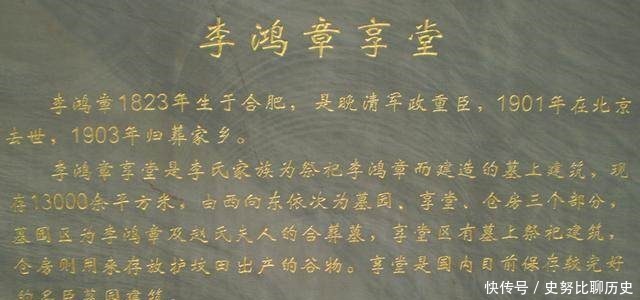 李鸿章享堂
李鸿章1823年生于合肥，是晚清军政重臣，1901年在北京
去世，1903年归葬家乡。
李鸿章享堂是李氏家族为祭祀李鸿章而建造的墓上建筑，现
存13000余平方米。由西向东依次为墓园、享堂、仓房三个部分，
墓园区为李鸿章及赵氏夫人的合葬墓，享堂区有墓上祭祀建筑，
仓房则用来存放护坟田出产的谷物。享堂是国内目前保存较完好
的名臣墓园建筑。
快传号 / 史努比聊历史